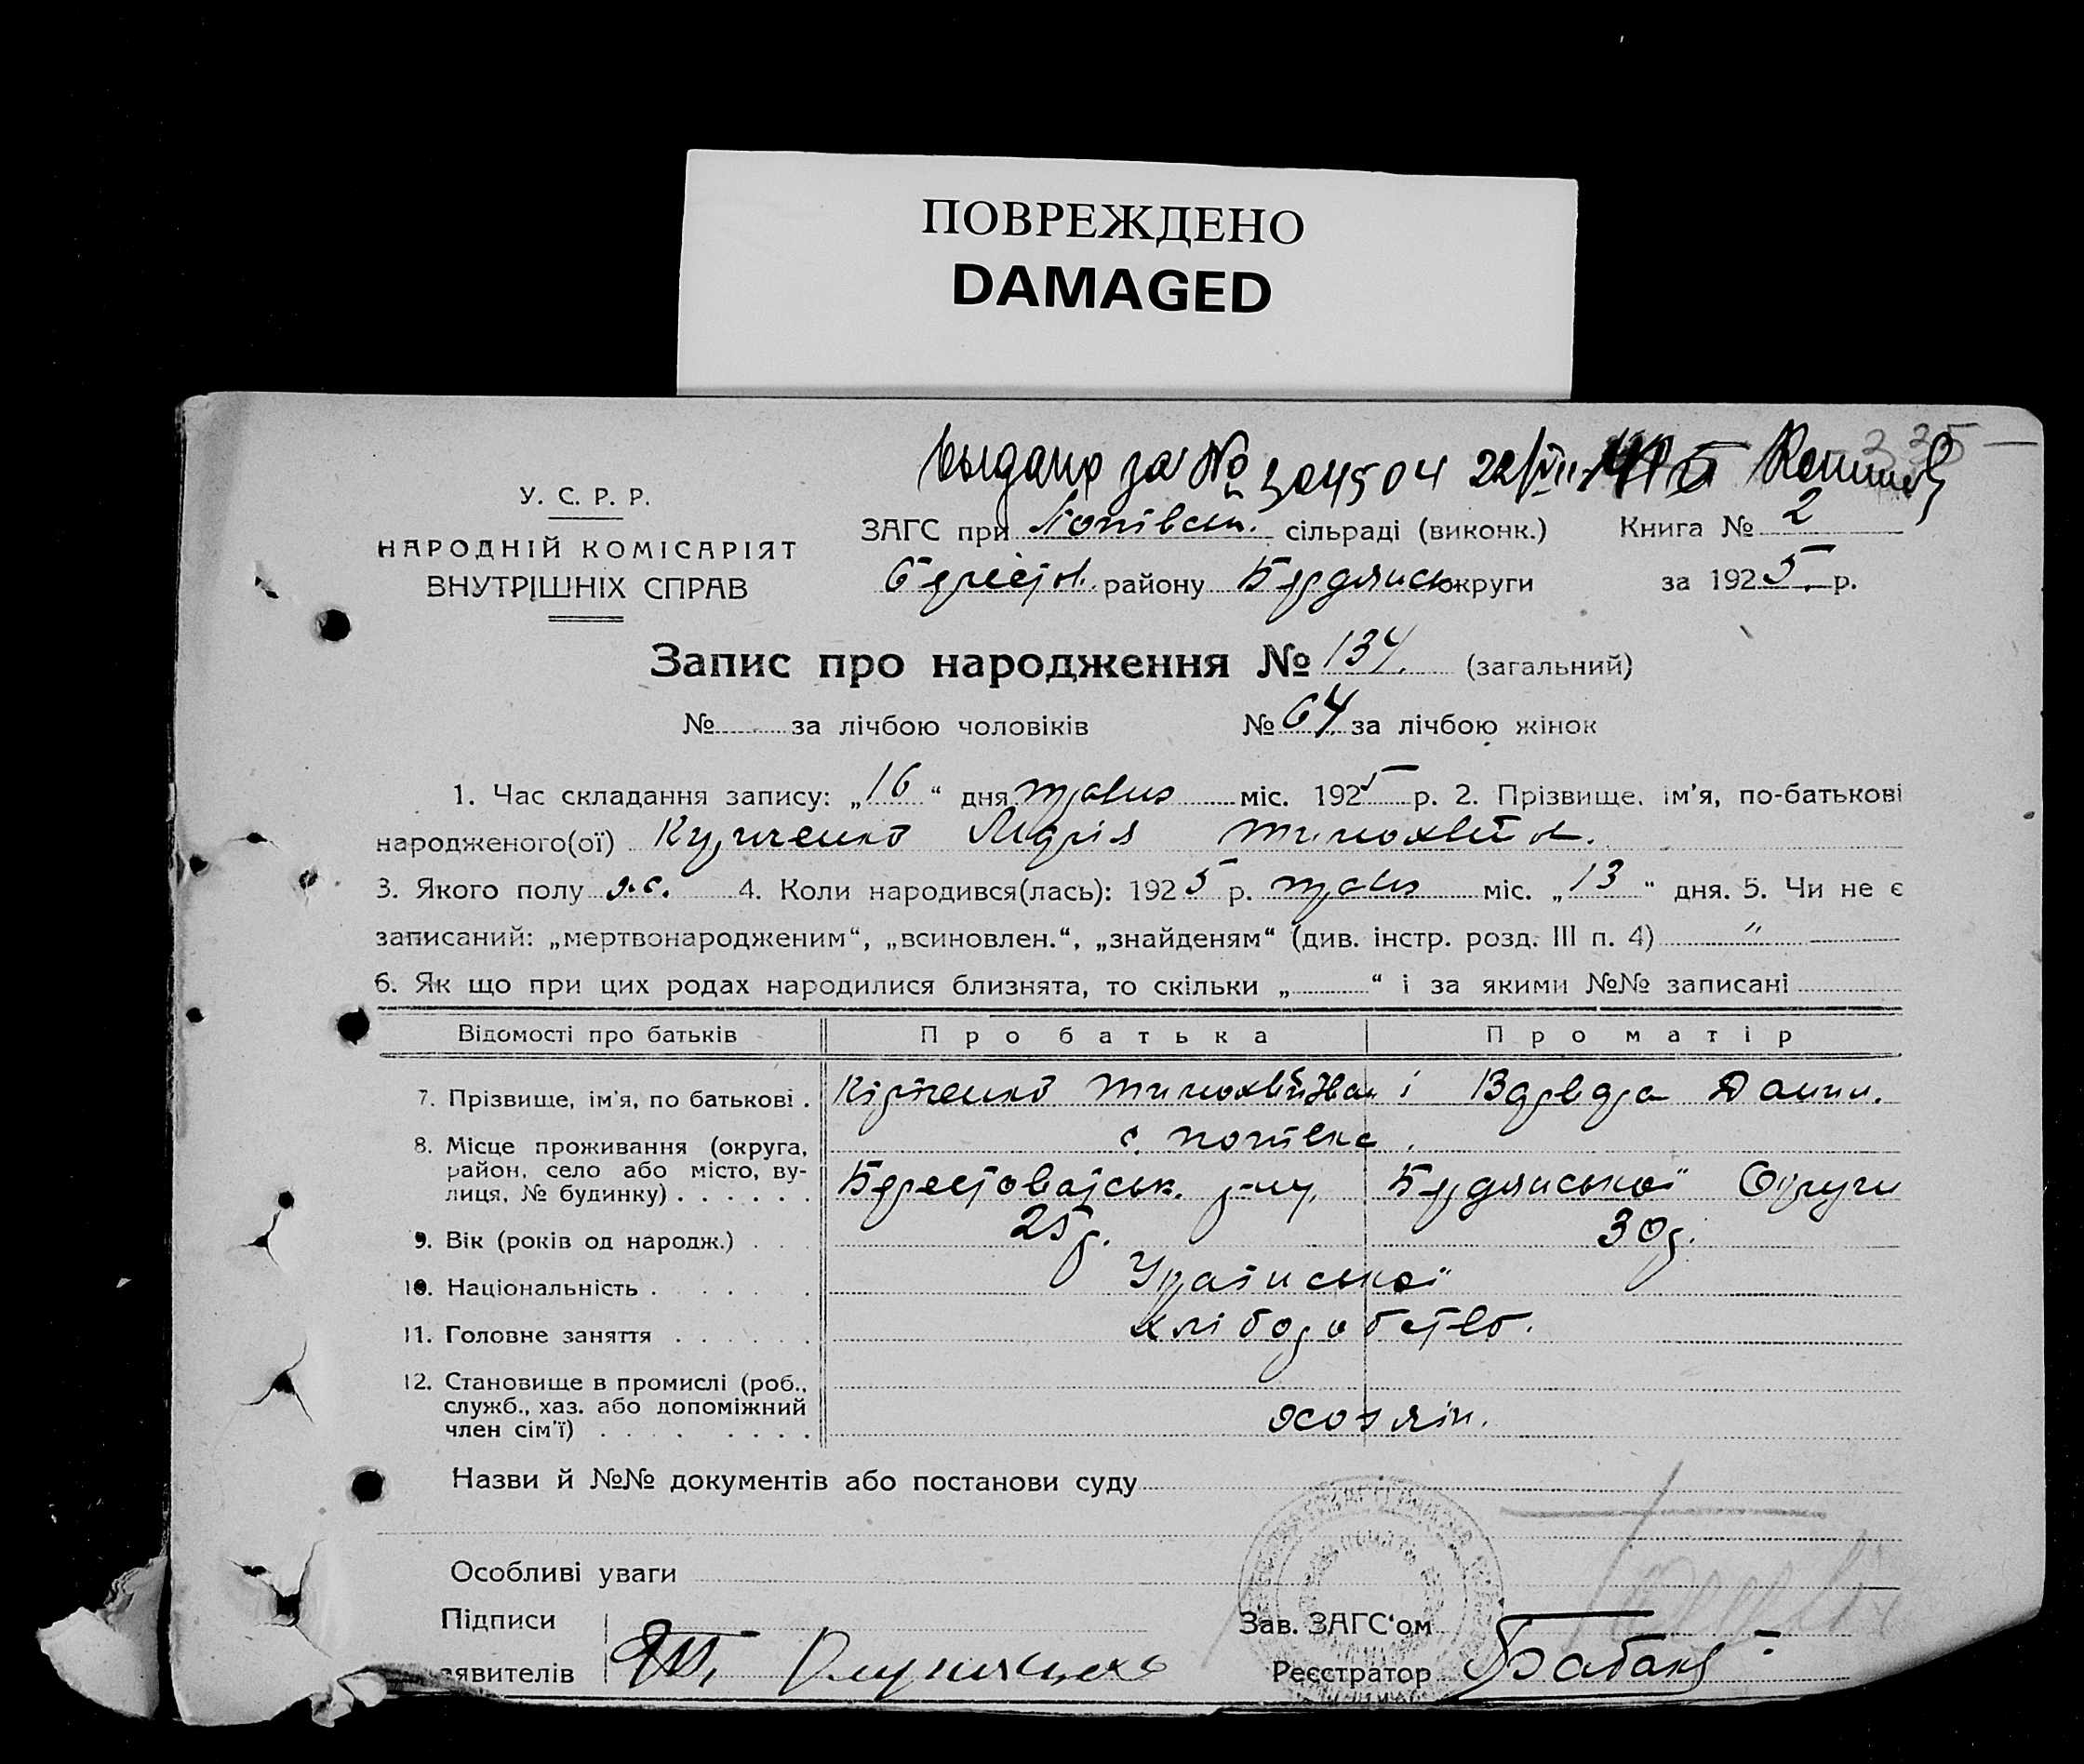 ПОВРЕЖДЕНО
DAMAGED
выдано за № 304504 22/VII
У. С. Р. Р.
НАРОДНІЙ КОМІСАРІЯТ
ВНУТРІШНІХ СПРАВ
ЗАГС при Попівськ. сільраді (виконк.) Книга № 2
Берест. району Бердянськ округи за 1925 р.
Запис про народження № 134. (загальний)
№ за лічбою чоловіків № 64 за лічбою жінок
1. Час складання запису: „16“ дня травня міс. 1925 р. 2. Прізвище, ім’я, по-батькові
народженого(ої) Марія Тимохвіїв.
3. Якого полу ж. 4. Коли народився(лась): 1925 р. травня міс. „13“ дня. 5. Чи не є
записаний: „мертвонародженим“, „всиновлен.“, „знайденям“ (див. інстр. розд. III п. 4) "
6. Як що при цих родах народилися близнята, то скільки „ “ і за якими №№ записані
Відомості про батьків Про батька Про матір
7. Прізвище, ім’я, по батькові . Тимохвій Іван і Варвара
с. Попівка.
8. Місце проживання (округа, район, село або місто, вулиця, № будинку) Берестоватськ. р-ну, Бердянської Округи
9. Вік (років од народж.) 25 р. 30 р.
10. Національність Української
11. Головне заняття хліборобство.
12. Становище в промислі (роб.,
служб., хаз. або допоміжний
член сім’ї) хозяїн.
Назви й №№ документів або постанови суду
Особливі уваги
Підписи Зав. ЗАГС‘ом
явителів Реєстратор